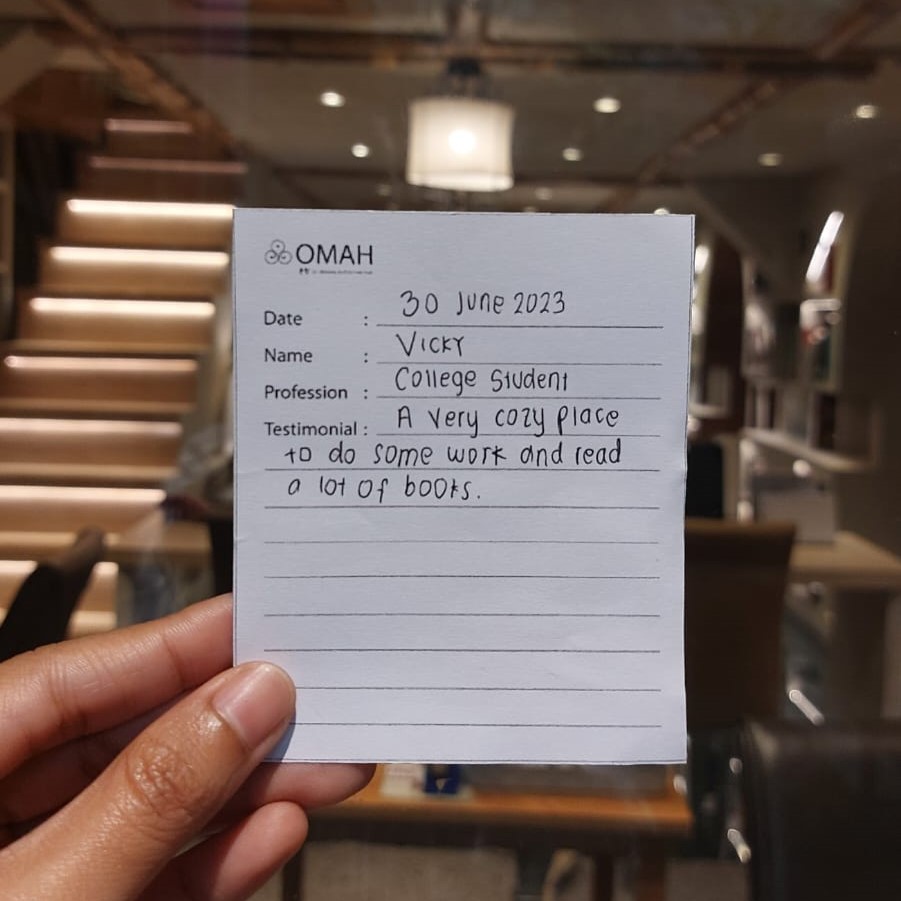 OMAH
Date : 30 June 2023
Name : Vicky
Profession : College Student
Testimonial : A very cozy place
to do some work and read
a lot of books.